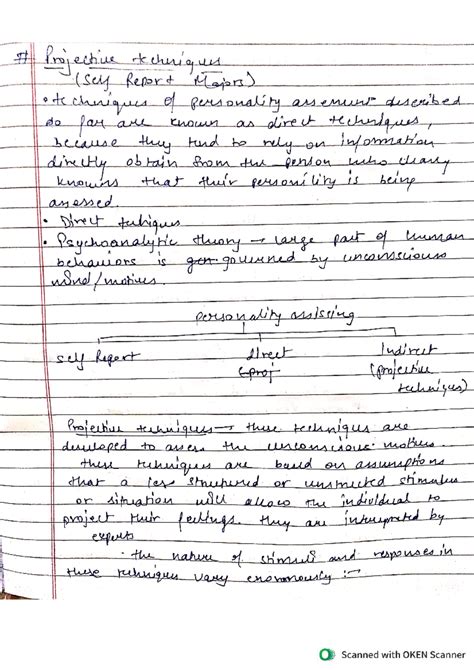 # Projective techniques
(Self Report Majors)
• techniques of personality assessment described
so far are known as direct techniques,
because they tend to rely on information
directly obtain from the person who clearly
knowns that their personility is being
assessed.
• Direct tehniques
• Psychoanalytic theory → large part of human
behaviors is gov governed by unconscious
mind/motives.
personality assissing
self Report direct Indirect
(proj (projective
techniques)
Projective techniques → these techniques are
developed to assess the unconscious motives.
these techniques are based on assumptions
that a less structured or unstructed stimulus
or situation will allow the individual to
project their feelings. they are interpreted by
experts
• the nature of stimuli and responses in
these techniques vary enormously :-
Scanned with OKEN Scanner